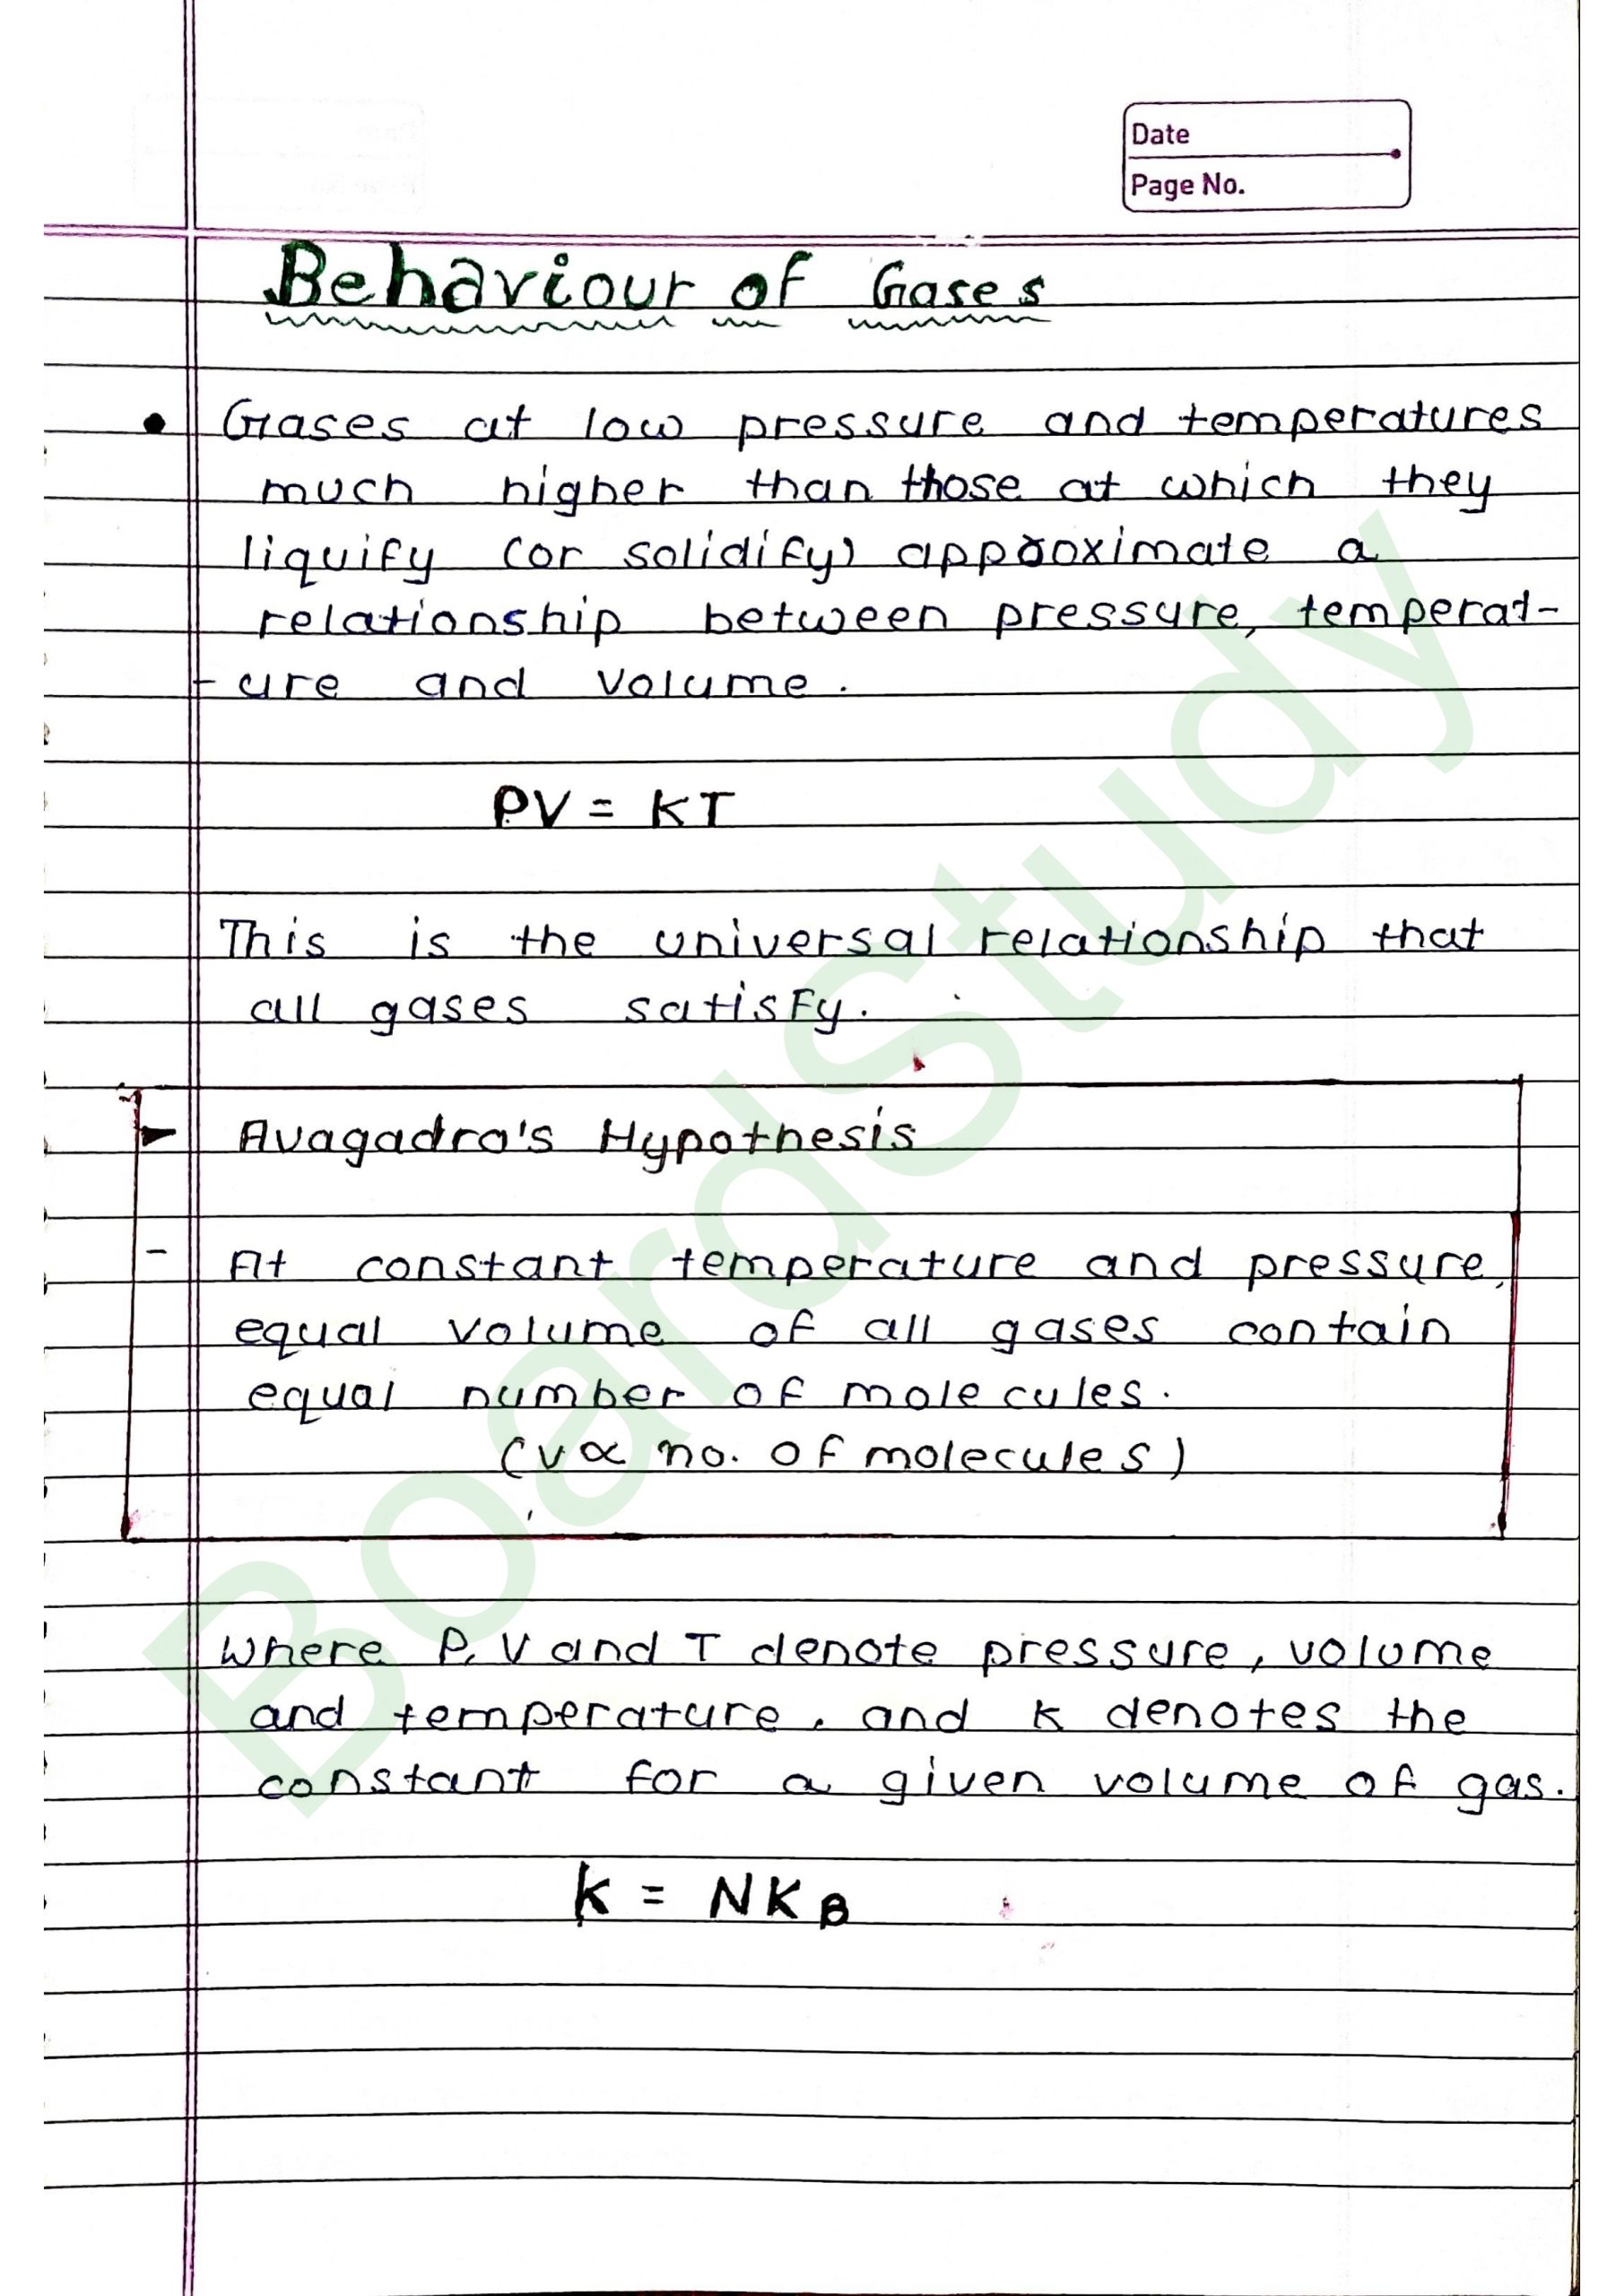 Date
Page No.
Behaviour of Gases
• Gases at low pressure and temperatures
much higher than those at which they
liquify (or solidify) approximate a
relationship between pressure, temperat-
-ure and volume.
PV = KT
This is the universal relationship that
all gases satisfy.
► Avagadro's Hypothesis
- At constant temperature and pressure,
equal volume of all gases contain
equal number of molecules.
(V ∝ no. of molecules)
where P, V and T denote pressure, volume
and temperature. and K denotes the
constant for a given volume of gas.
K = NK_B
BoardStudy